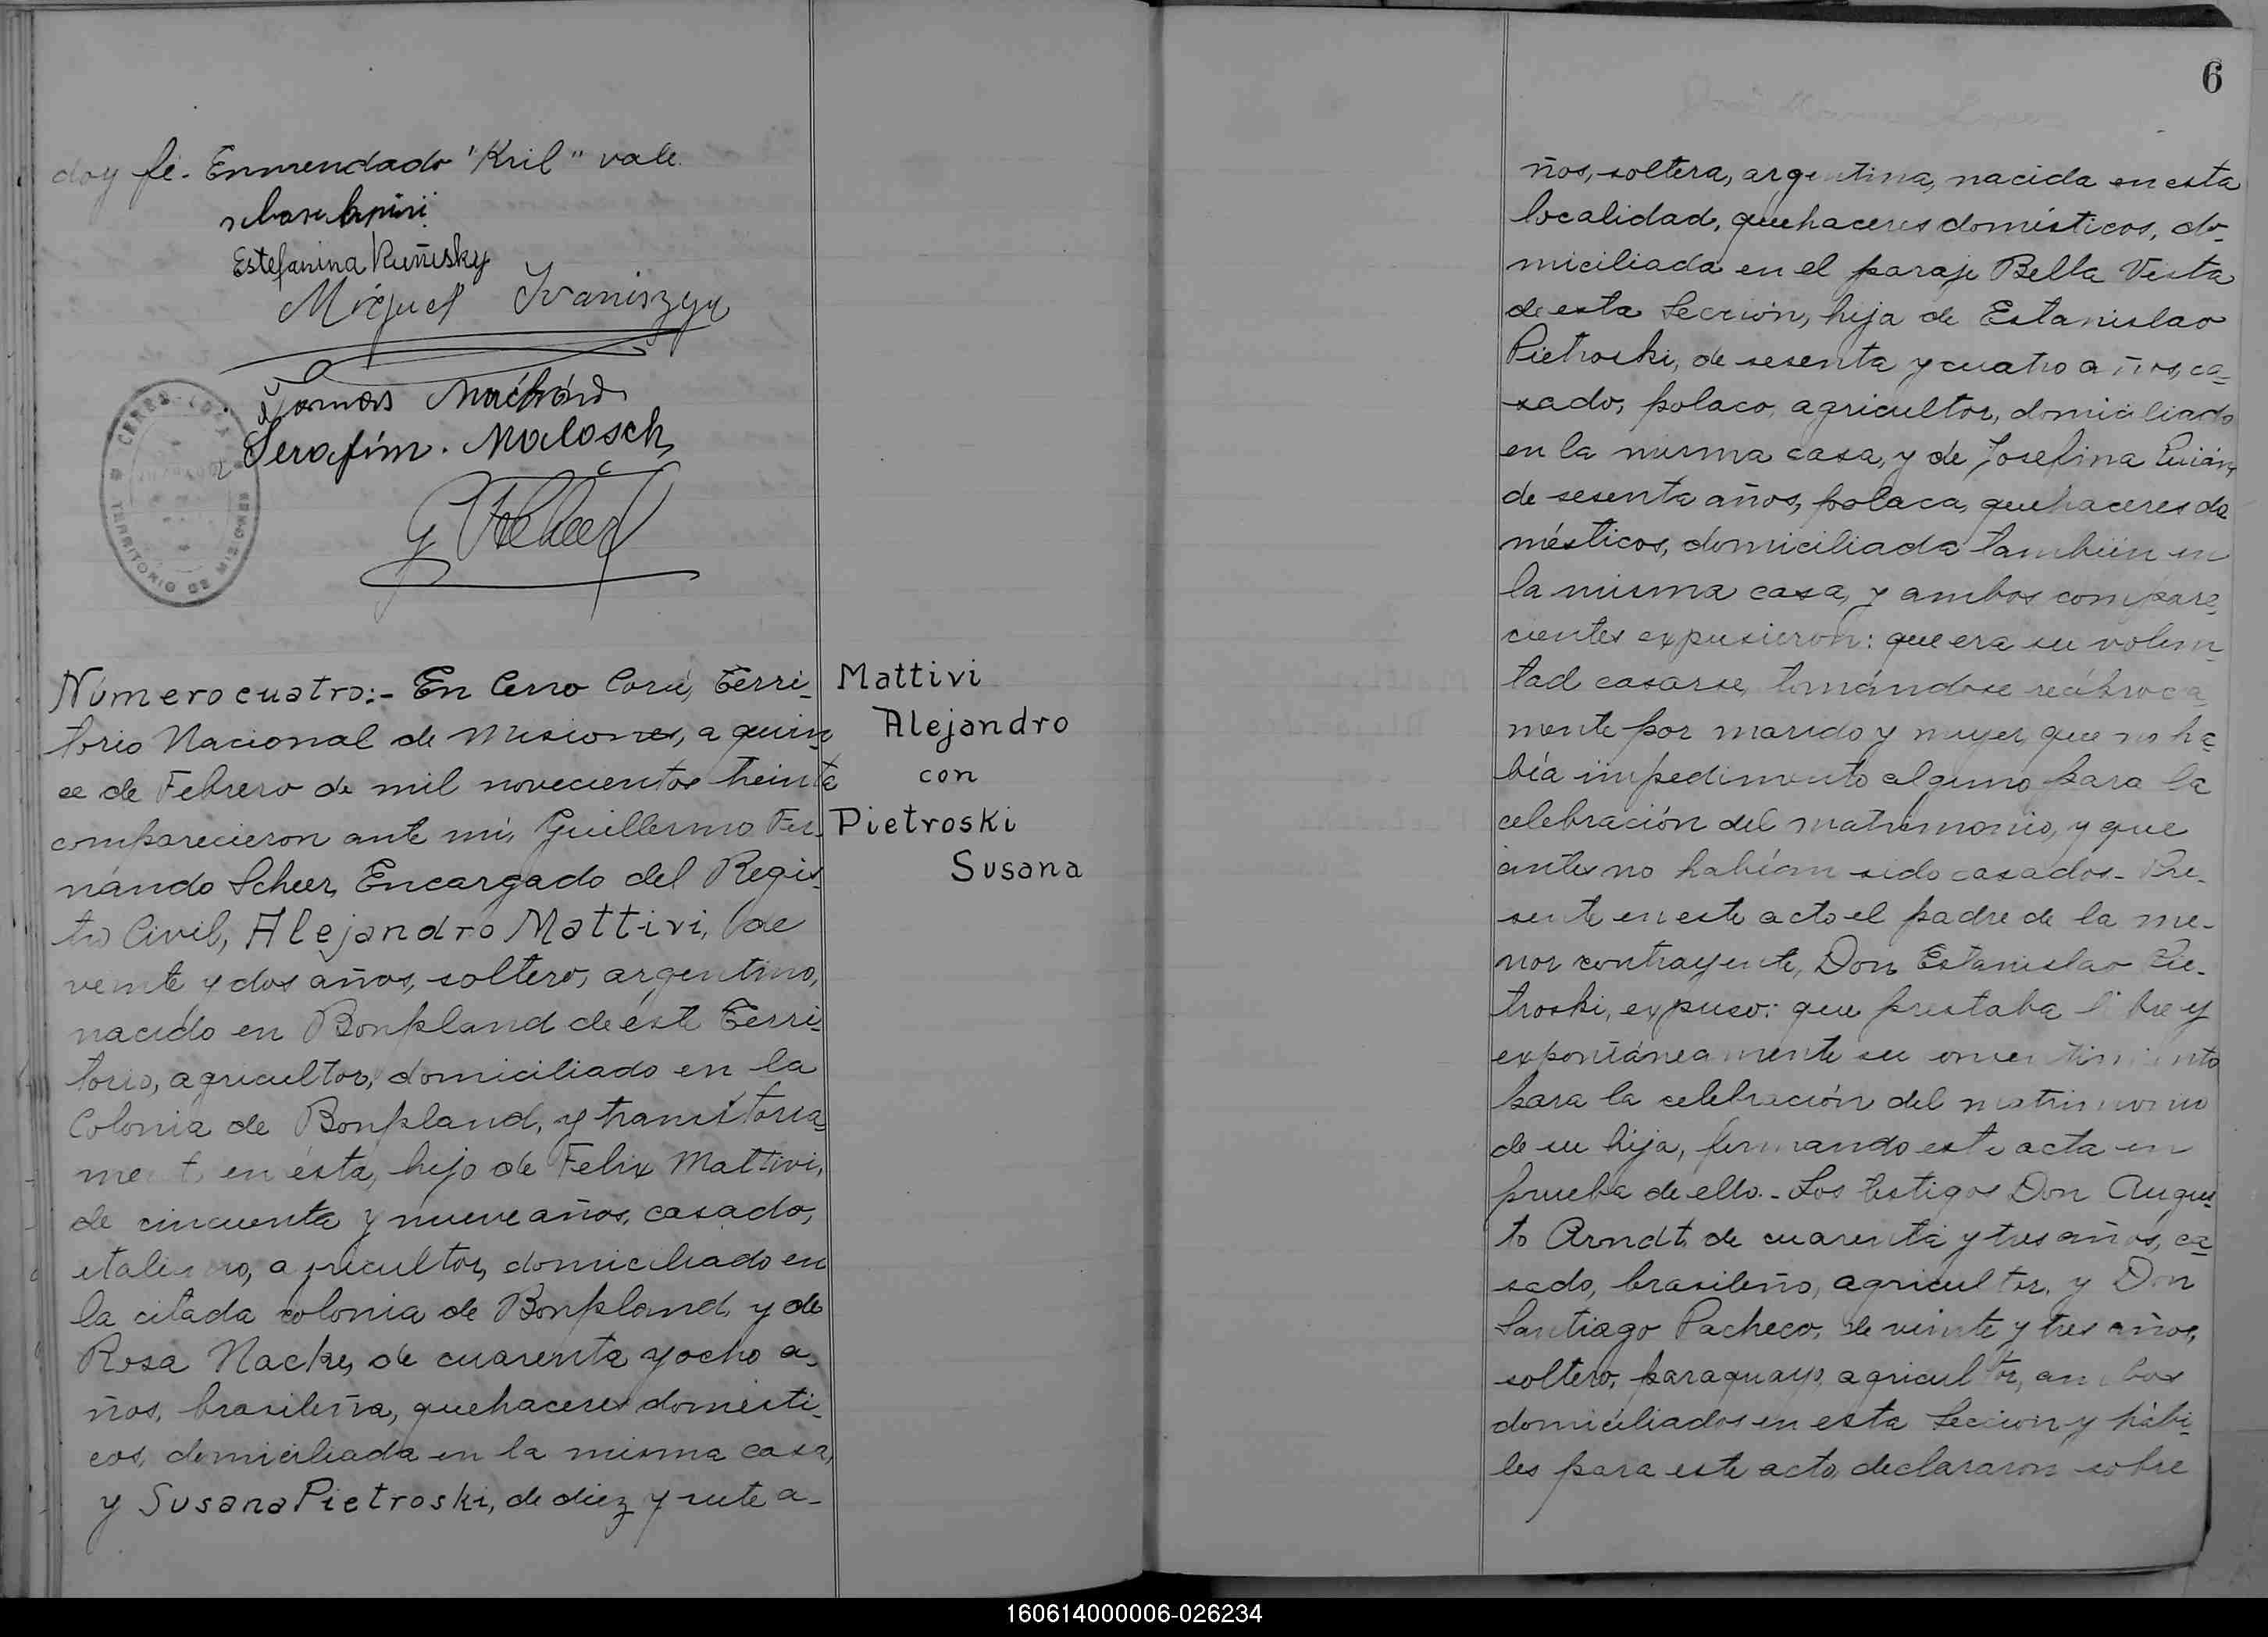 doy fé. Enmendado "Kril" vale.
Estefanina Ruñisky
Miguel Ivaniszyn
Tomás
Serafím. Malosch
G Scheer
CERRO CORÁ
TERRITORIO DE MISIONES
Número cuatro:- En Cerro Corá, Terri-
torio Nacional de Misiones, a quin-
ce de Febrero de mil novecientos treinta
comparecieron ante mí, Guillermo Fer-
nando Scheer, Encargado del Regis-
tro Civil, Alejandro Mattivi, de
veinte y dos años, soltero, argentino,
nacido en Bonpland de éste Terri-
torio, agricultor, domiciliado en la
Colonia de Bonpland, y transitoria-
ment en ésta, hijo de Felix Mattivi,
de cincuenta y nueve años, casado,
italiano, agricultor, domiciliado en
la citada colonia de Bonpland, y de
Rosa Nacke, de cuarenta y ocho a-
ños, brasileña, quehaceres domésti-
cos, domiciliada en la misma casa,
y Susana Pietroski, de diez y siete a-
Mattivi
Alejandro
con
Pietroski
Susana
6
ños, soltera, argentina, nacida en esta
localidad, quehaceres domésticos, do-
miciliada en el paraje Bella Vista
de esta Sección, hija de Estanislao
Pietroski, de sesenta y cuatro años, ca-
sado, polaco, agricultor, domiciliado
en la misma casa, y de Josefina
de sesenta años, polaca, quehaceres do
mésticos, domiciliada también en
la misma casa, y ambos compare-
cientes expusieron: que era su volun-
tad casarse, tomándose recíproca-
mente por marido y mujer, que no ha-
bía impedimento alguno para la
celebración del matrimonio, y que
antes no habían sido casados.- Pre-
sente en este acto el padre de la me-
nor contrayente, Don Estanislao Pie-
troski, expuso: que prestaba libre y
expontáneamente su consentimiento
para la celebración del matrimonio
de su hija, firmando este acta en
prueba de ello.- Los testigos Don Augus-
to Arndt, de cuarenta y tres años, ca-
sado, brasileño, agricultor, y Don
Santiago Pacheco, de veinte y tres años,
soltero, paraguayo, agricultor, ambos
domiciliados en esta Sección y hábi-
les para este acto, declararon sobre
160614000006-026234